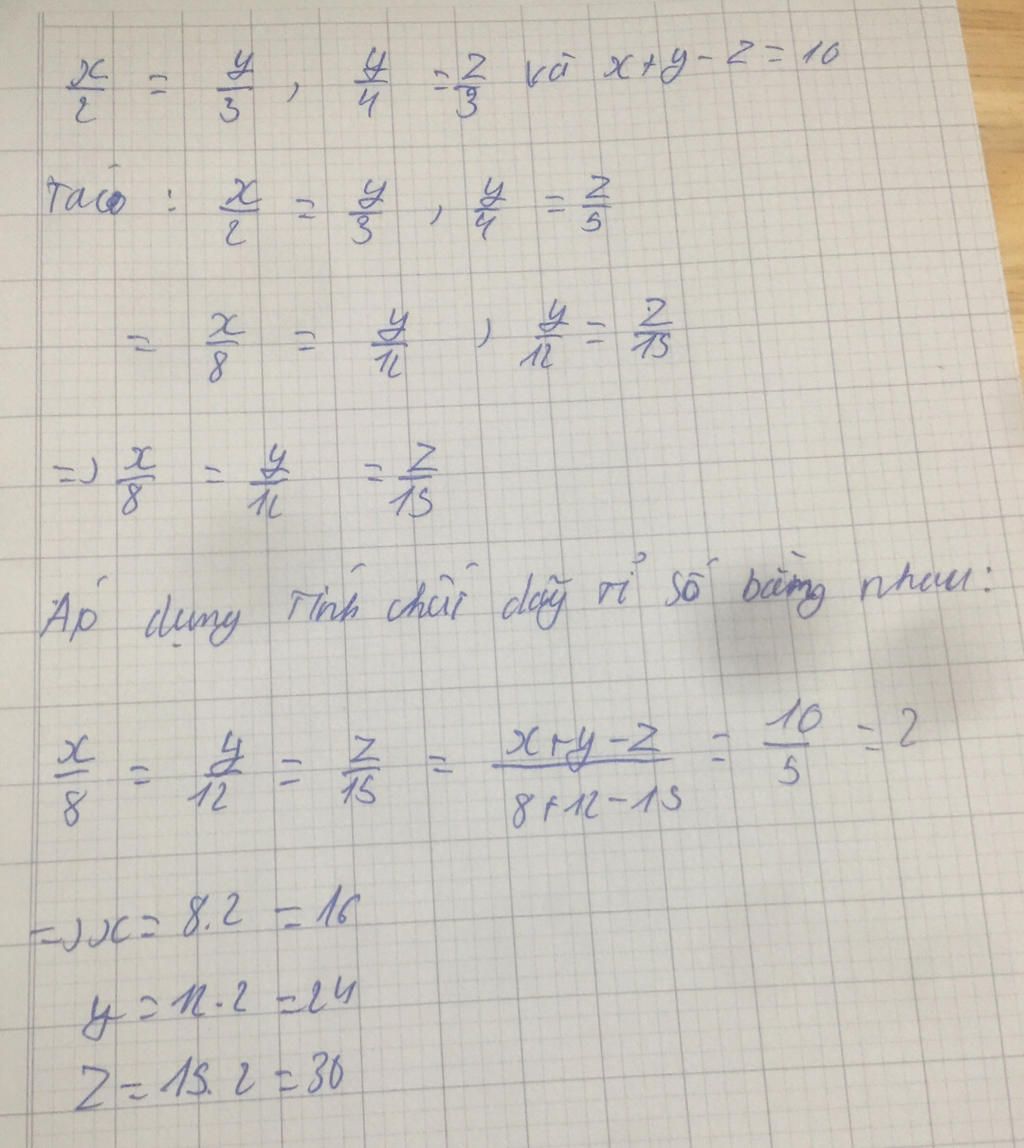 x/2 = y/3 , y/4 = z/3 và x+y-z=10
Ta có : x/2 = y/3 , y/4 = z/5
= x/8 = y/12 , y/12 = z/15
=> x/8 = y/12 = z/15
Áp dụng tính chất dãy tỉ số bằng nhau:
x/8 = y/12 = z/15 = x+y-z/8+12-15 = 10/5 = 2
=> x = 8.2 = 16
y = 12.2 = 24
z = 15.2 = 30